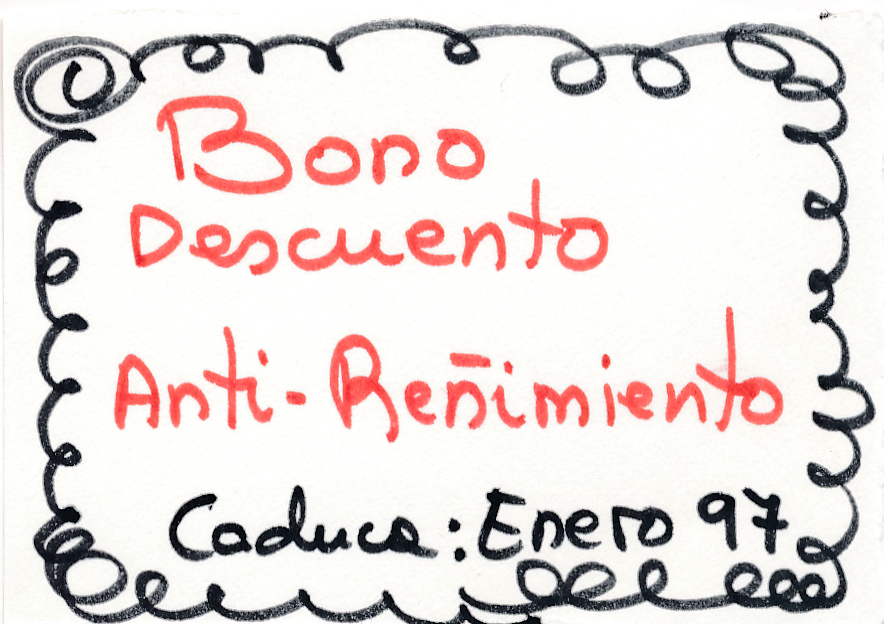 Bono
Descuento
Anti-Reñimiento
Caduca: Enero 97